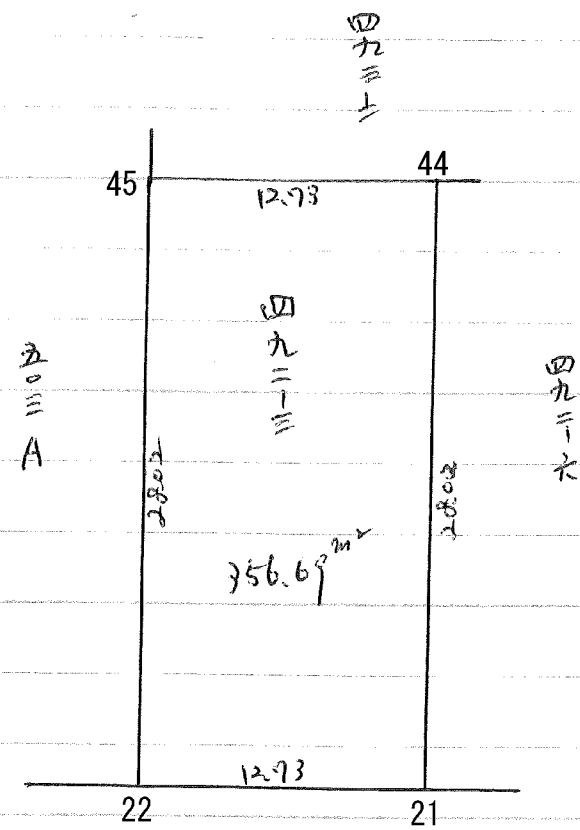 四九三ー
45
44
12.73
四九二ー三
五〇三
A
四九二ー六
28.02
28.02
356.69 m²
12.73
22
21